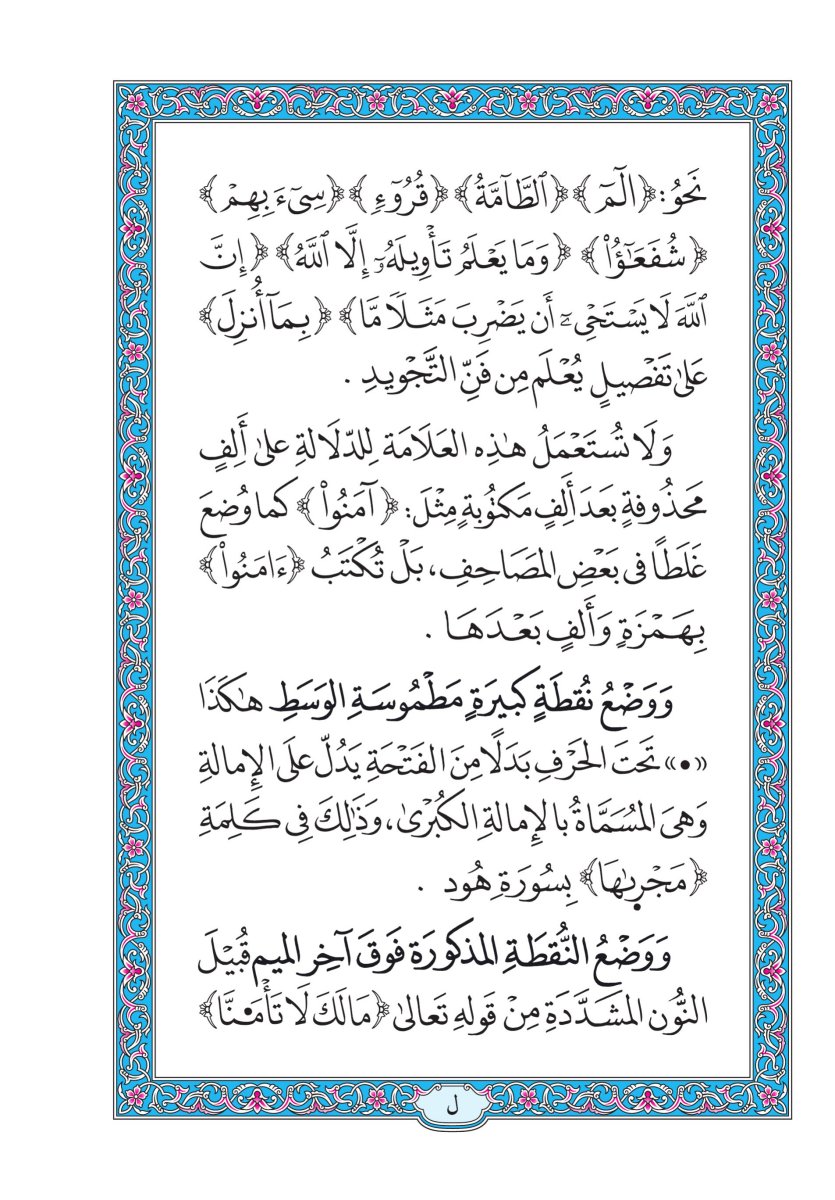 نَحْوُ: ﴿الٓمٓ﴾ ﴿ٱلطَّآمَّةُ﴾ ﴿قُرُوٓءٍ﴾ ﴿سِيٓءَ بِهِمْ﴾
﴿شُفَعَٰٓؤُاْ﴾ ﴿وَمَا يَعْلَمُ تَأْوِيلَهُۥٓ إِلَّا ٱللَّهُ﴾ ﴿إِنَّ
ٱللَّهَ لَا يَسْتَحْىِۦٓ أَن يَضْرِبَ مَثَلًا مَّا﴾ ﴿بِمَآ أُنزِلَ﴾
عَلىٰ تَفْصِيلٍ يُعْلَم مِن فَنِّ التَّجْويدِ .
وَلَا تُسْتَعْمَلُ هٰذِه العَلَامَة لِلدّلَالةِ علىٰ أَلِفٍ
مَحْذُوفةٍ بَعدَ أَلِفٍ مَكتُوبةٍ مِثْلَ: ﴿آمَنُواْ﴾ كما وُضعَ
غَلَطًا فى بَعْضِ المَصَاحِفِ، بَلْ تُكْتَبُ ﴿ءَامَنُواْ﴾
بِهَمْزَةٍ وَأَلفٍ بَعْدَهَا .
وَوَضْعُ نُقطَةٍ كبيرَةٍ مَطْمُوسَةِ الوَسَطِ هٰكَذَا
«•» تَحتَ الحَرْفِ بَدَلًا مِنَ الفَتْحَةِ يَدُلّ علَى الإِمالةِ
وَهىَ المُسَمَّاةُ بالإِمالةِ الكُبْرىٰ، وَذَٰلِكَ فِى كَلِمَةِ
﴿مَجْر۪ىٰهَا﴾ بِسُورَةِ هُود .
وَوَضْعُ النُّقطَةِ المذكورَة فَوقَ آخِر الميم قُبَيْلَ
النُّون المشَدَّدَةِ مِنْ قَولهِ تَعالىٰ ﴿مَالَكَ لَا تَأْمَ۬نَّا﴾
ل